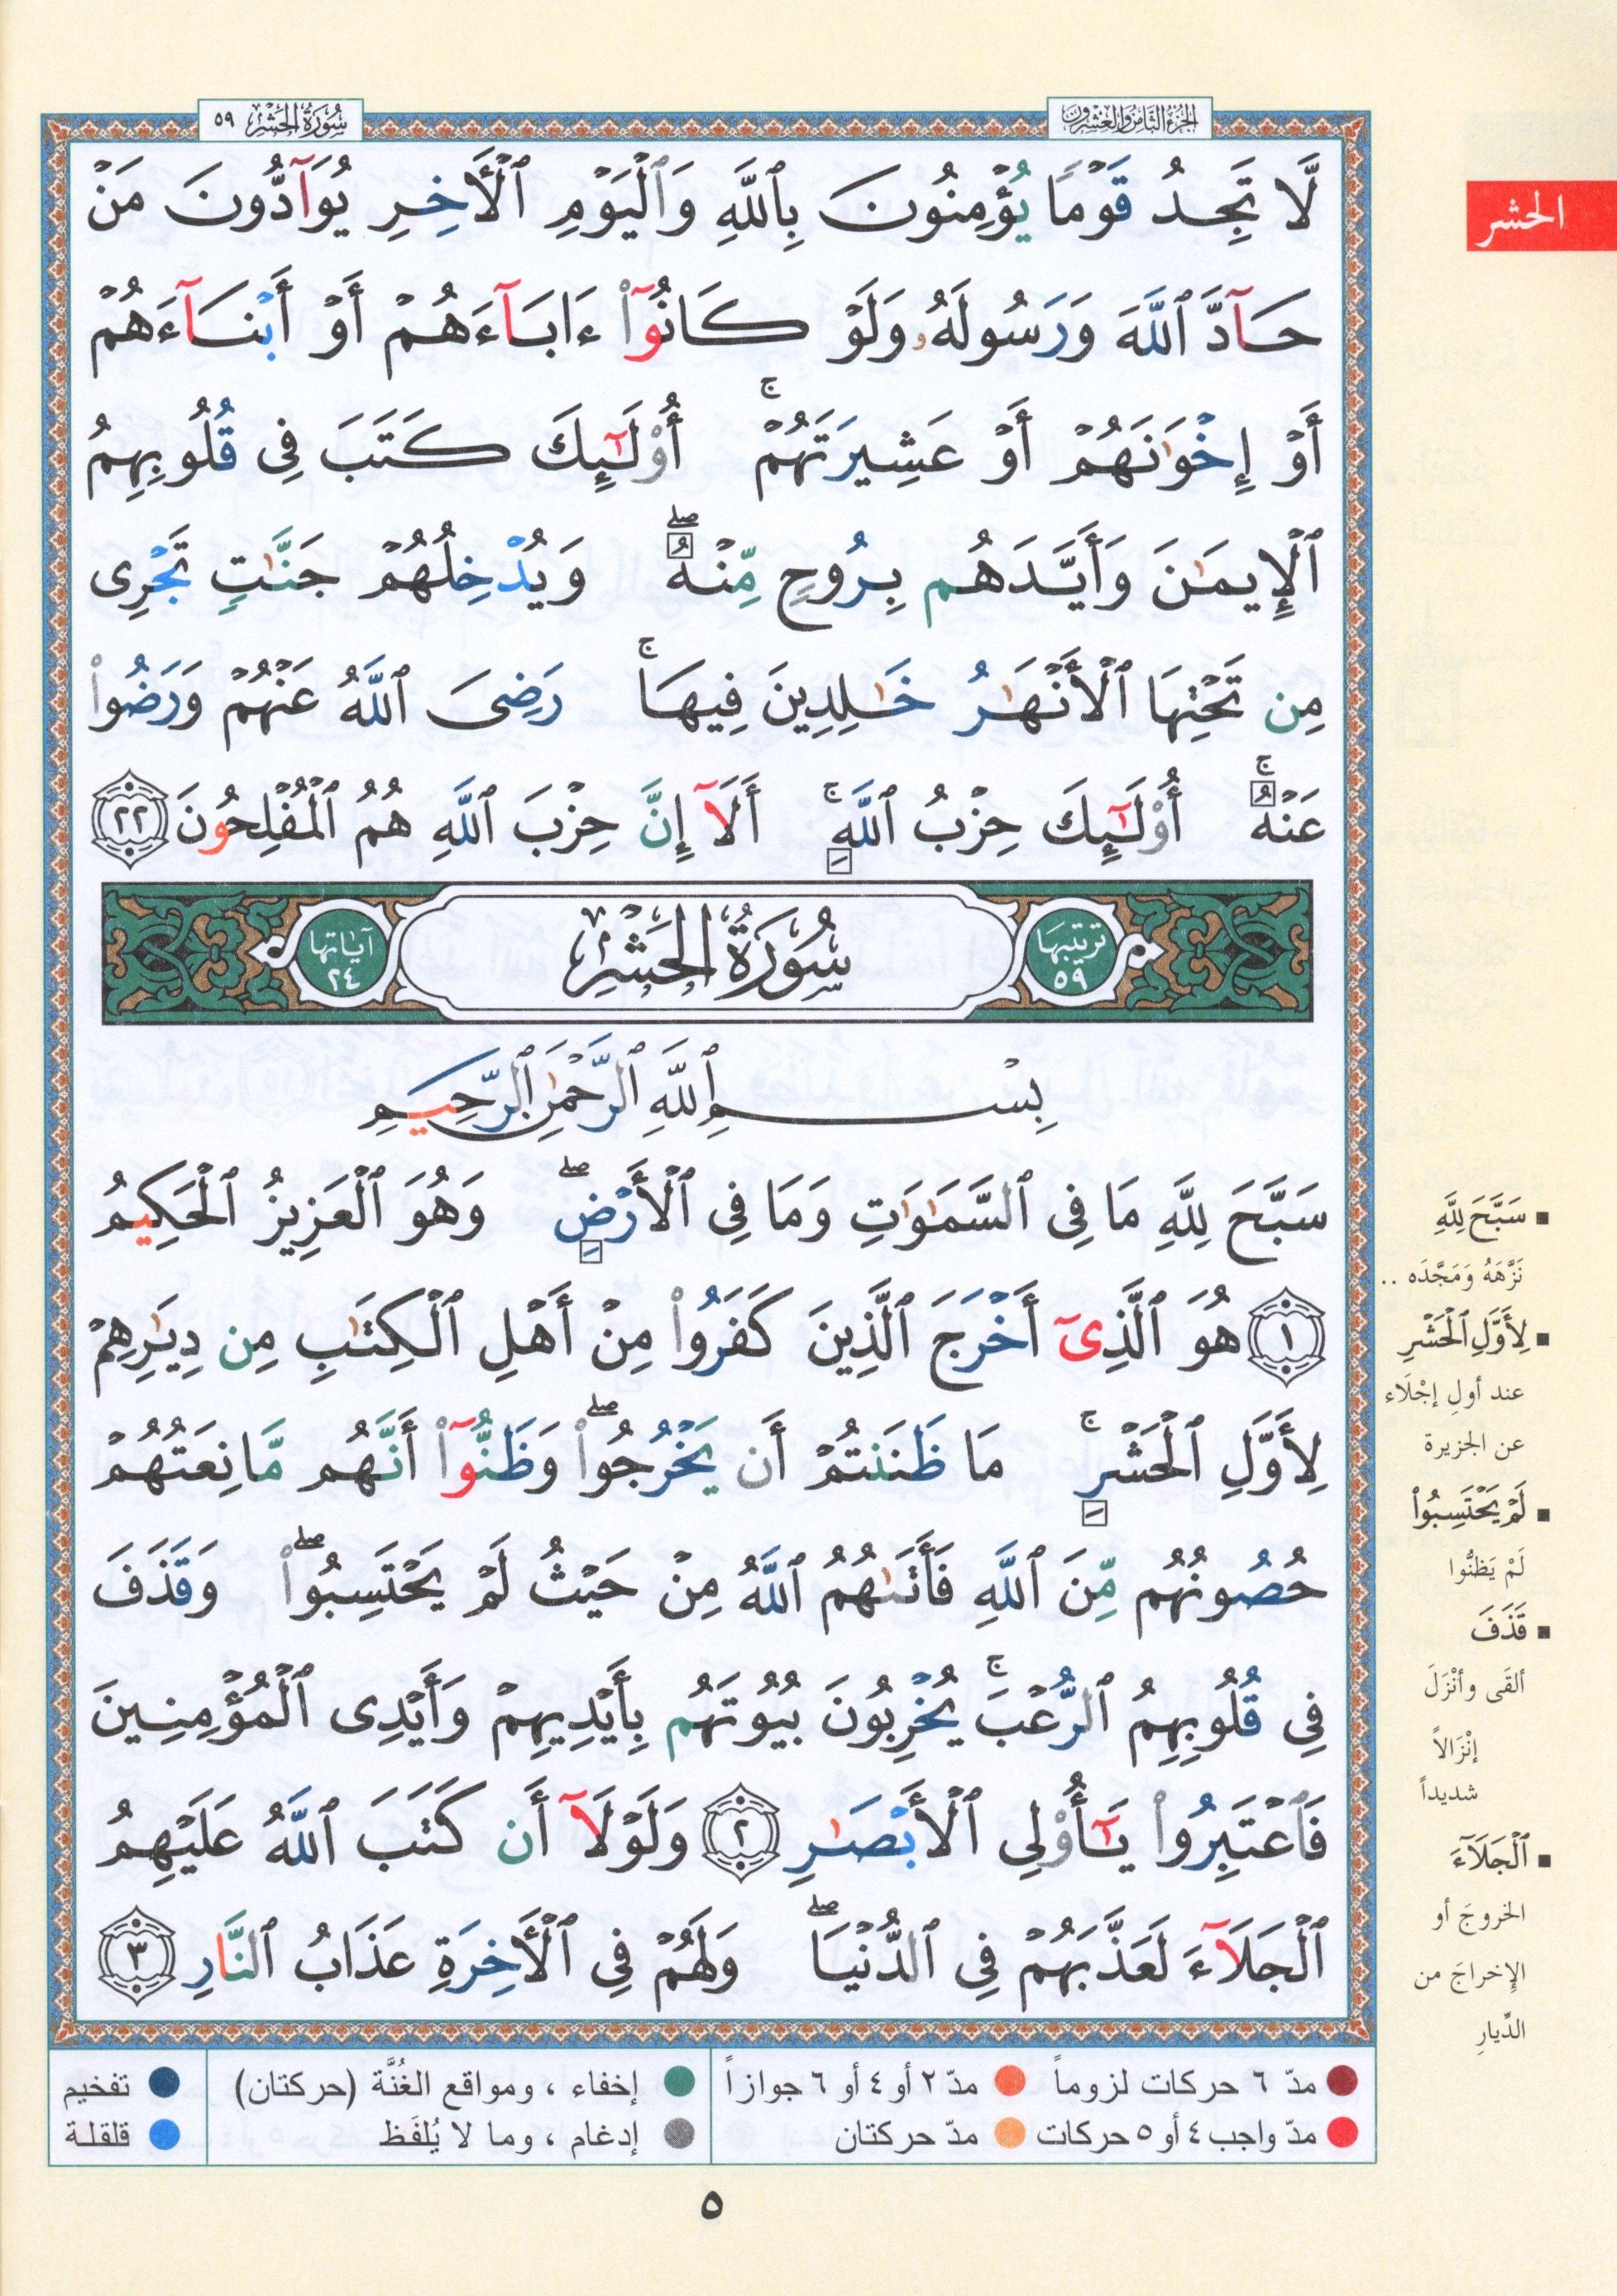 الجزء الثامن والعشرون
سورة الحشر ٥٩
الحشر
لَّا تَجِدُ قَوْمًا يُؤْمِنُونَ بِٱللَّهِ وَٱلْيَوْمِ ٱلْأَخِرِ يُوَآدُّونَ مَنْ
حَآدَّ ٱللَّهَ وَرَسُولَهُۥ وَلَوْ كَانُوٓا۟ ءَابَآءَهُمْ أَوْ أَبْنَآءَهُمْ
أَوْ إِخْوَٰنَهُمْ أَوْ عَشِيرَتَهُمْ ۚ أُو۟لَـٰٓئِكَ كَتَبَ فِى قُلُوبِهِمُ
ٱلْإِيمَـٰنَ وَأَيَّدَهُم بِرُوحٍ مِّنْهُ ۖ وَيُدْخِلُهُمْ جَنَّـٰتٍ تَجْرِى
مِن تَحْتِهَا ٱلْأَنْهَـٰرُ خَـٰلِدِينَ فِيهَا ۚ رَضِىَ ٱللَّهُ عَنْهُمْ وَرَضُوا۟
عَنْهُ ۚ أُو۟لَـٰٓئِكَ حِزْبُ ٱللَّهِ ۚ أَلَآ إِنَّ حِزْبَ ٱللَّهِ هُمُ ٱلْمُفْلِحُونَ ٢٢
ترتيبها ٥٩ سُورَةُ الحَشْرِ آياتها ٢٤
بِسْمِ ٱللَّهِ ٱلرَّحْمَـٰنِ ٱلرَّحِيمِ
سَبَّحَ لِلَّهِ مَا فِى ٱلسَّمَـٰوَٰتِ وَمَا فِى ٱلْأَرْضِ ۖ وَهُوَ ٱلْعَزِيزُ ٱلْحَكِيمُ
١ هُوَ ٱلَّذِىٓ أَخْرَجَ ٱلَّذِينَ كَفَرُوا۟ مِنْ أَهْلِ ٱلْكِتَـٰبِ مِن دِيَـٰرِهِمْ
لِأَوَّلِ ٱلْحَشْرِ ۚ مَا ظَنَنتُمْ أَن يَخْرُجُوا۟ ۖ وَظَنُّوٓا۟ أَنَّهُم مَّانِعَتُهُمْ
حُصُونُهُم مِّنَ ٱللَّهِ فَأَتَىٰهُمُ ٱللَّهُ مِنْ حَيْثُ لَمْ يَحْتَسِبُوا۟ ۖ وَقَذَفَ
فِى قُلُوبِهِمُ ٱلرُّعْبَ ۚ يُخْرِبُونَ بُيُوتَهُم بِأَيْدِيهِمْ وَأَيْدِى ٱلْمُؤْمِنِينَ
فَٱعْتَبِرُوا۟ يَـٰٓأُو۟لِى ٱلْأَبْصَـٰرِ ٢ وَلَوْلَآ أَن كَتَبَ ٱللَّهُ عَلَيْهِمُ
ٱلْجَلَآءَ لَعَذَّبَهُمْ فِى ٱلدُّنْيَا ۖ وَلَهُمْ فِى ٱلْأَخِرَةِ عَذَابُ ٱلنَّارِ ٣
سَبَّحَ لِلَّهِ
نَزَّهَهُ وَمَجَّدَه ..
لِأَوَّلِ ٱلْحَشْرِ
عند أولِ إجْلَاء
عن الجزيرة
لَمْ يَحْتَسِبُوا۟
لَمْ يَظنُّوا
قَذَفَ
ألقَى وأنْزَلَ
إنْزَالاً
شديداً
ٱلْجَلَآءَ
الخروجَ أو
الإخراجَ من
الدِّيارِ
مدّ ٦ حركات لزوماً مدّ ٢ أو ٤ أو ٦ جوازاً إخفاء ، ومواقع الغُنَّة (حركتان) تفخيم
مدّ واجب ٤ أو ٥ حركات مدّ حركتان إدغام ، وما لا يُلفَظ قلقلة
٥